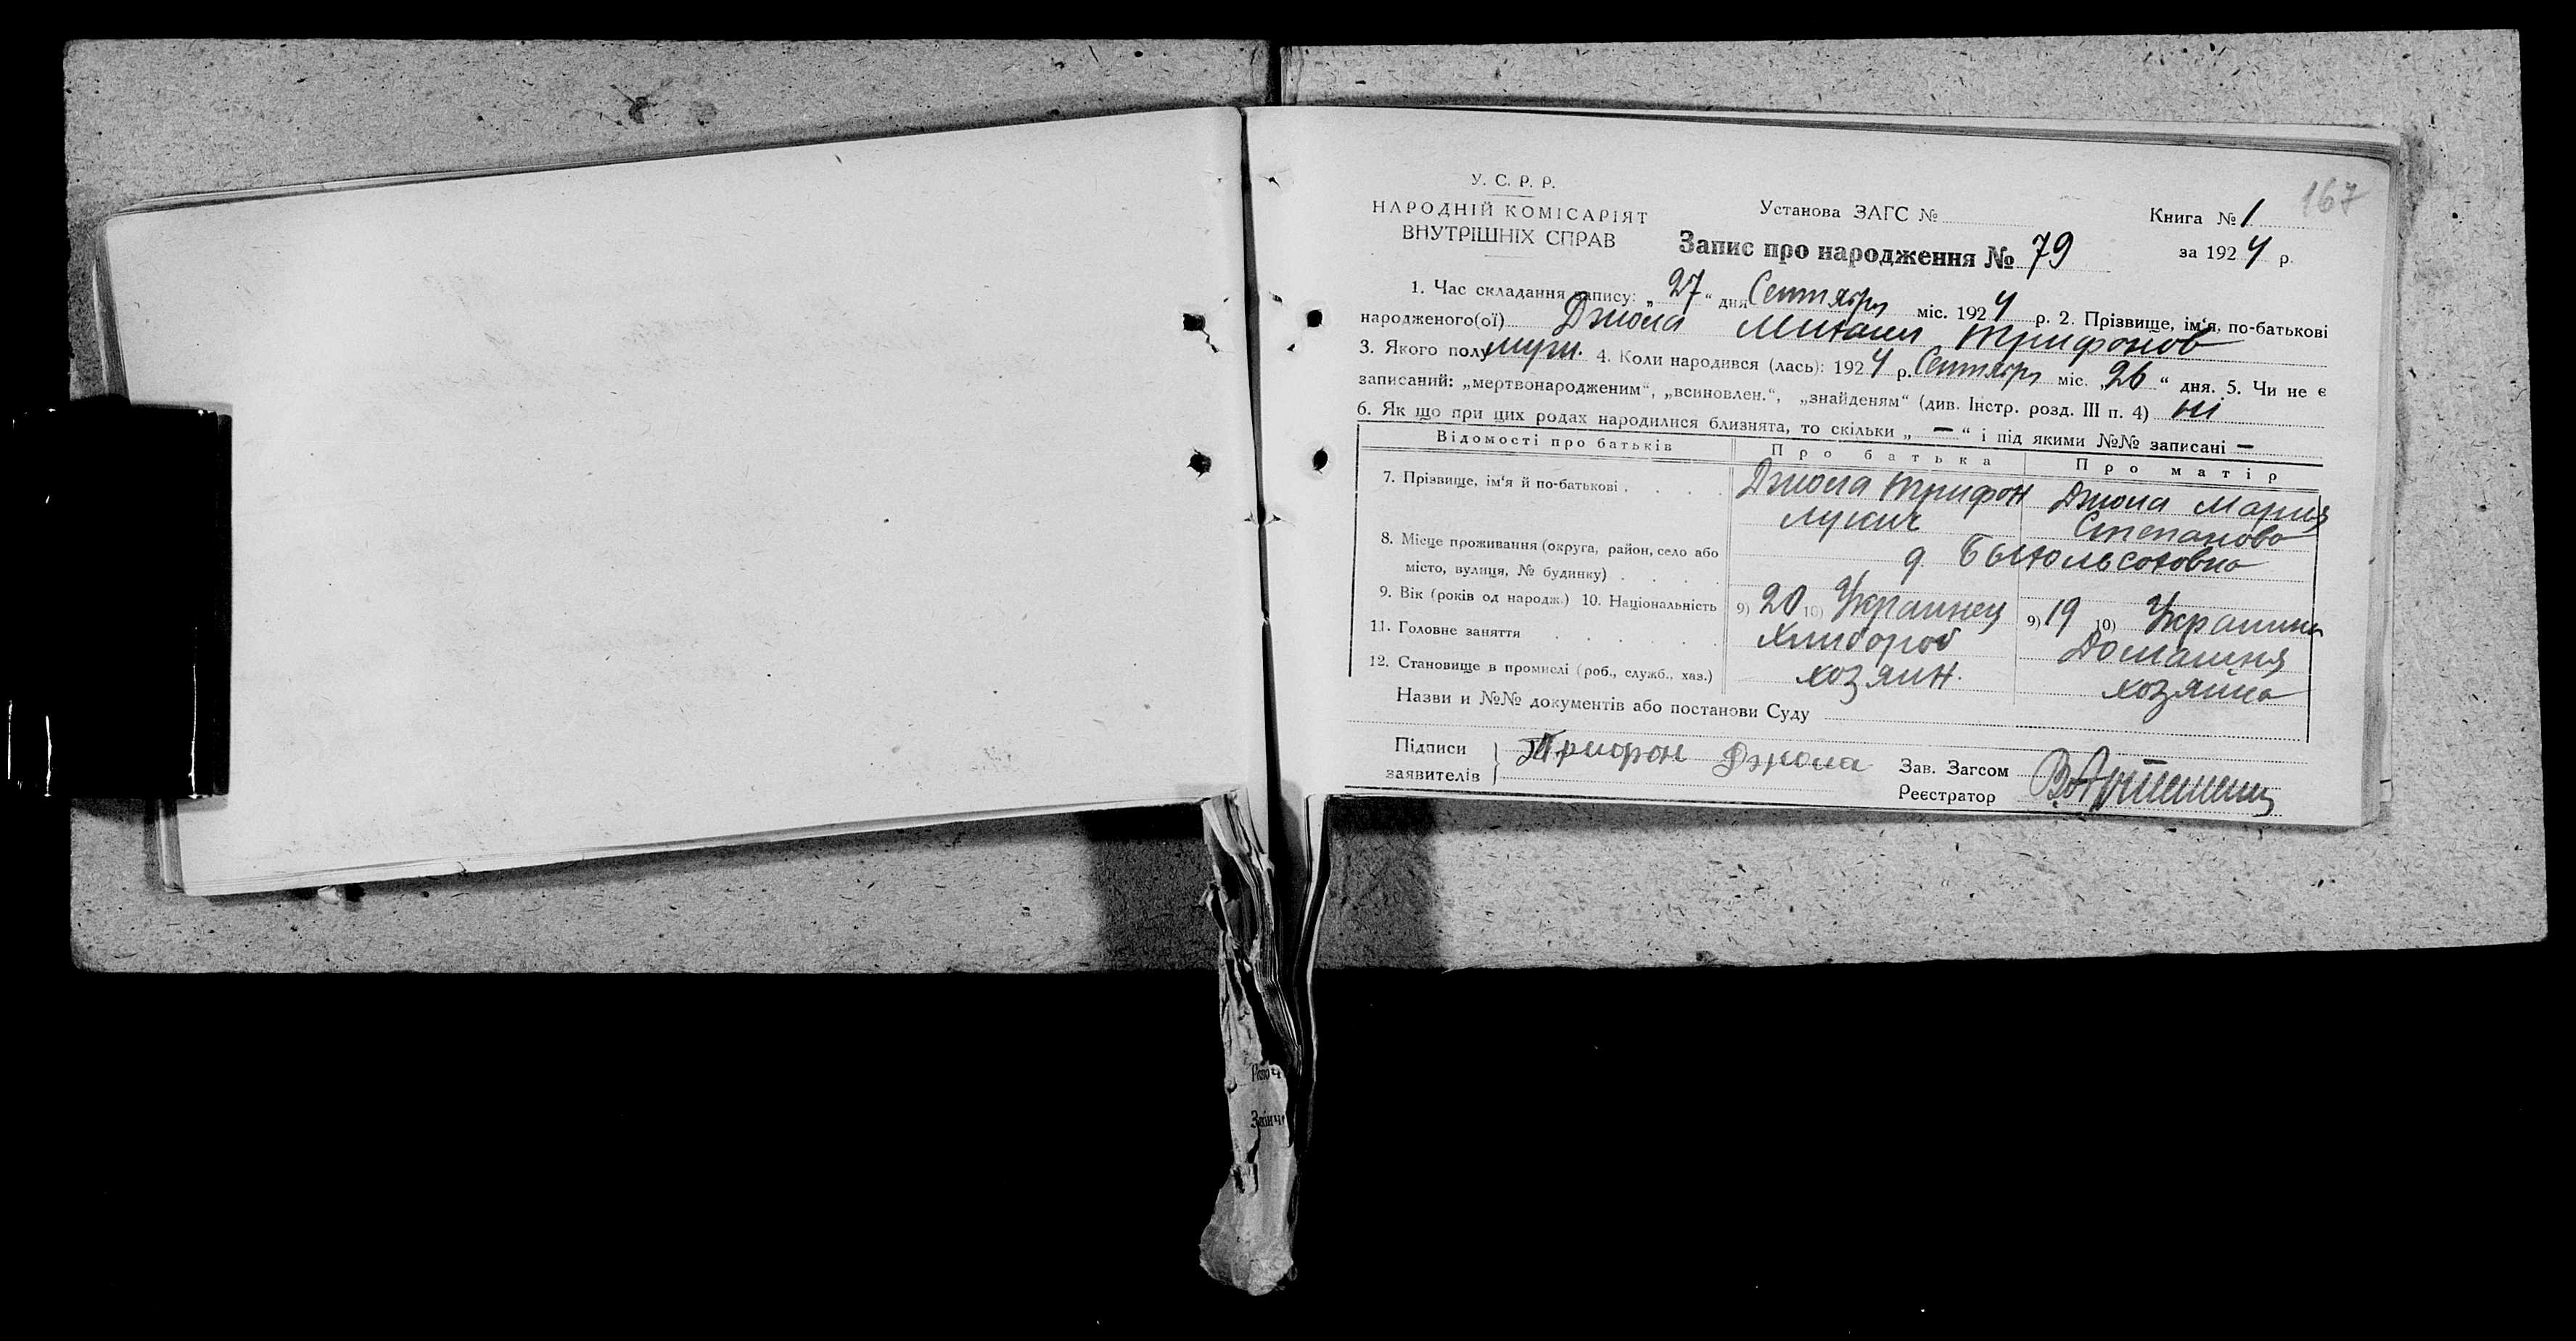 167
У. С. Р. Р.
НАРОДНІЙ КОМІСАРІЯТ
ВНУТРІШНІХ СПРАВ
Установа ЗАГС №
Книга № 1
Запис про народження № 79
за 1924 р.
1. Час складання запису: „27“ дня Сентября міс. 1924 р. 2. Прізвище, ім‘я, по-батькові
народженого(ої) Джола Михаил Трифонов
3. Якого полу муж. 4. Коли народився (лась): 1924 р. Сентября міс. „26“ дня. 5. Чи не є
записаний: „мертвонародженим“, „всиновлен.“, „знайденям“ (див. Інстр. розд. III п. 4) ні
6. Як що при цих родах народилися близнята, то скільки „ — “ і під якими №№ записані —
Відомості про батьків Про батька Про матір
7. Прізвище, ім‘я й по-батькові . . . . Джола Трифон Джола Мария
Лукич Степанова
8. Місце проживання (округа, район, село або
місто, вулиця, № будинку) . . . . д.
9. Вік (років од народж.) 10. Національність 9) 20 10) Украинец 9) 19 10)
11. Головне заняття . . . . . Хлибороб Домашня
12. Становище в промислі (роб., служб., хаз.) хозяин. хозяйка
Назви и №№ документів або постанови Суду
Підписи
заявителів } Трифон Джола
Зав. Загсом
Реєстратор
Звінч